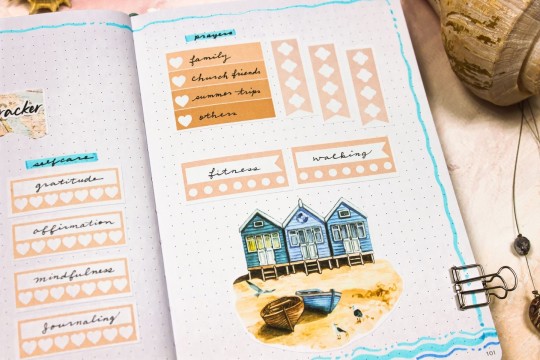 racker
selfcare
gratitude
affirmation
mindfulness
Journaling
prayers
family
church friends
summer trips
others
fitness
walking
101